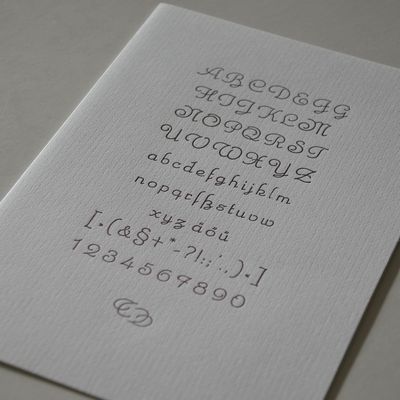 ABCDEFG
HIJKLM
NOPQRST
UVWXYZ
abcdefghijklm
nopqrſßstuvw
xyz äöü
[·(&§+*-?!:;'..)·]
1234567890